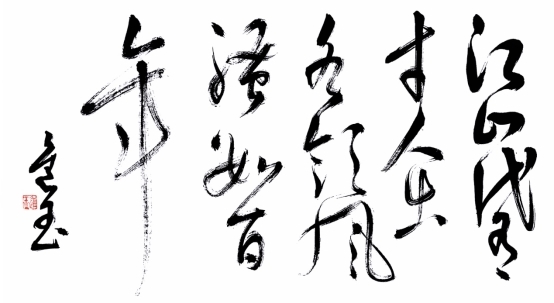 江山代有
才人出
各领风
骚数百
年
玉